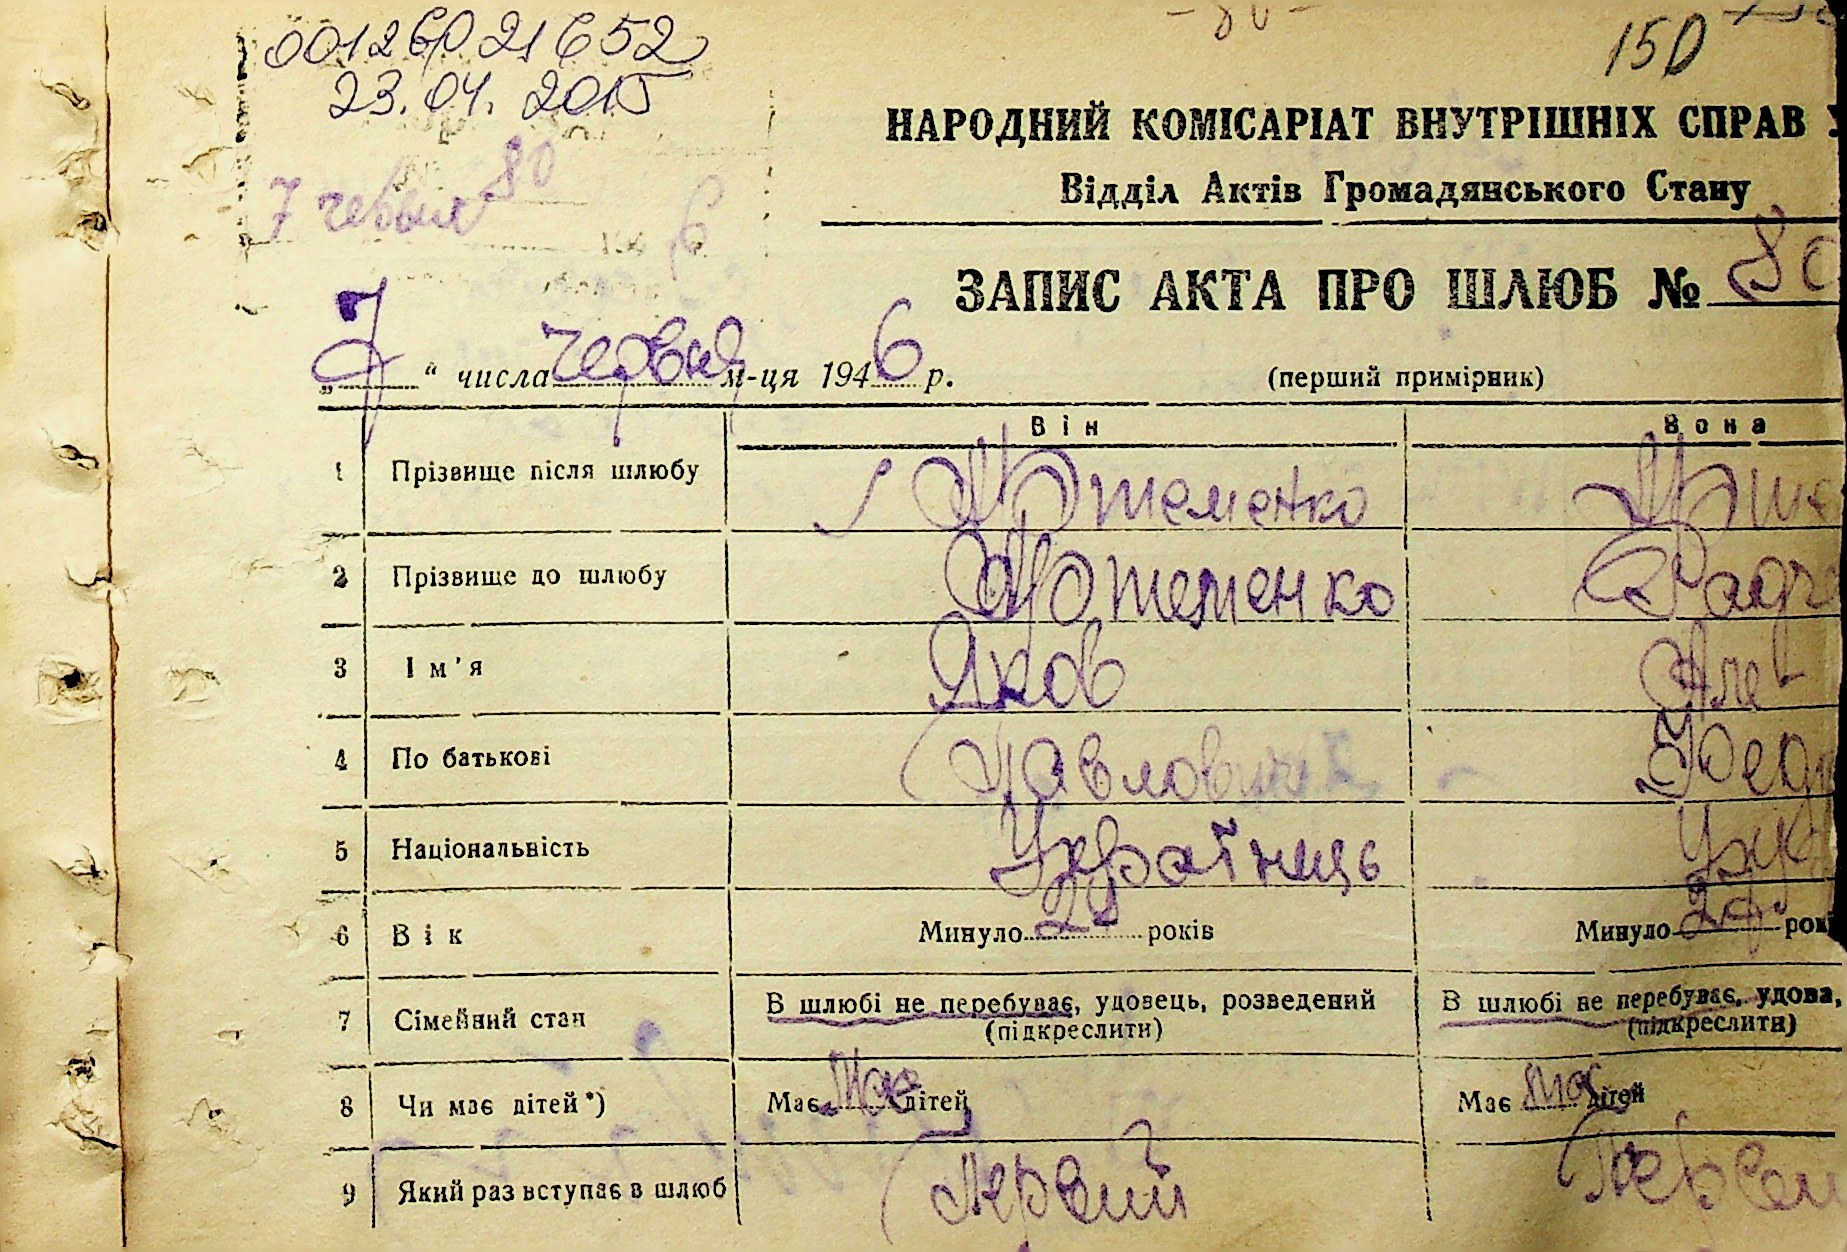 00126021652
23.04.2015
- 80 -
150
НАРОДНИЙ КОМІСАРІАТ ВНУТРІШНІХ СПРАВ
Відділ Актів Громадянського Стану
7 червня 80
6
ЗАПИС АКТА ПРО ШЛЮБ № 80
„7“ числа червня м-ця 1946 р.
(перший примірник)
Він Вона
1 Прізвище після шлюбу Артеменко Арте
2 Прізвище до шлюбу Артеменко Радч
3 Ім'я Яков Але
4 По батькові Павлович Федо
5 Національність Українець Укр
6 Вік Минуло 28 років Минуло рокі
7 Сімейний стан В шлюбі не перебуває, удовець, розведений В шлюбі не перебуває, удова,
(підкреслити) (підкреслити)
8 Чи має дітей*) Має дітей Має дітей
9 Який раз вступає в шлюб Первий Первий